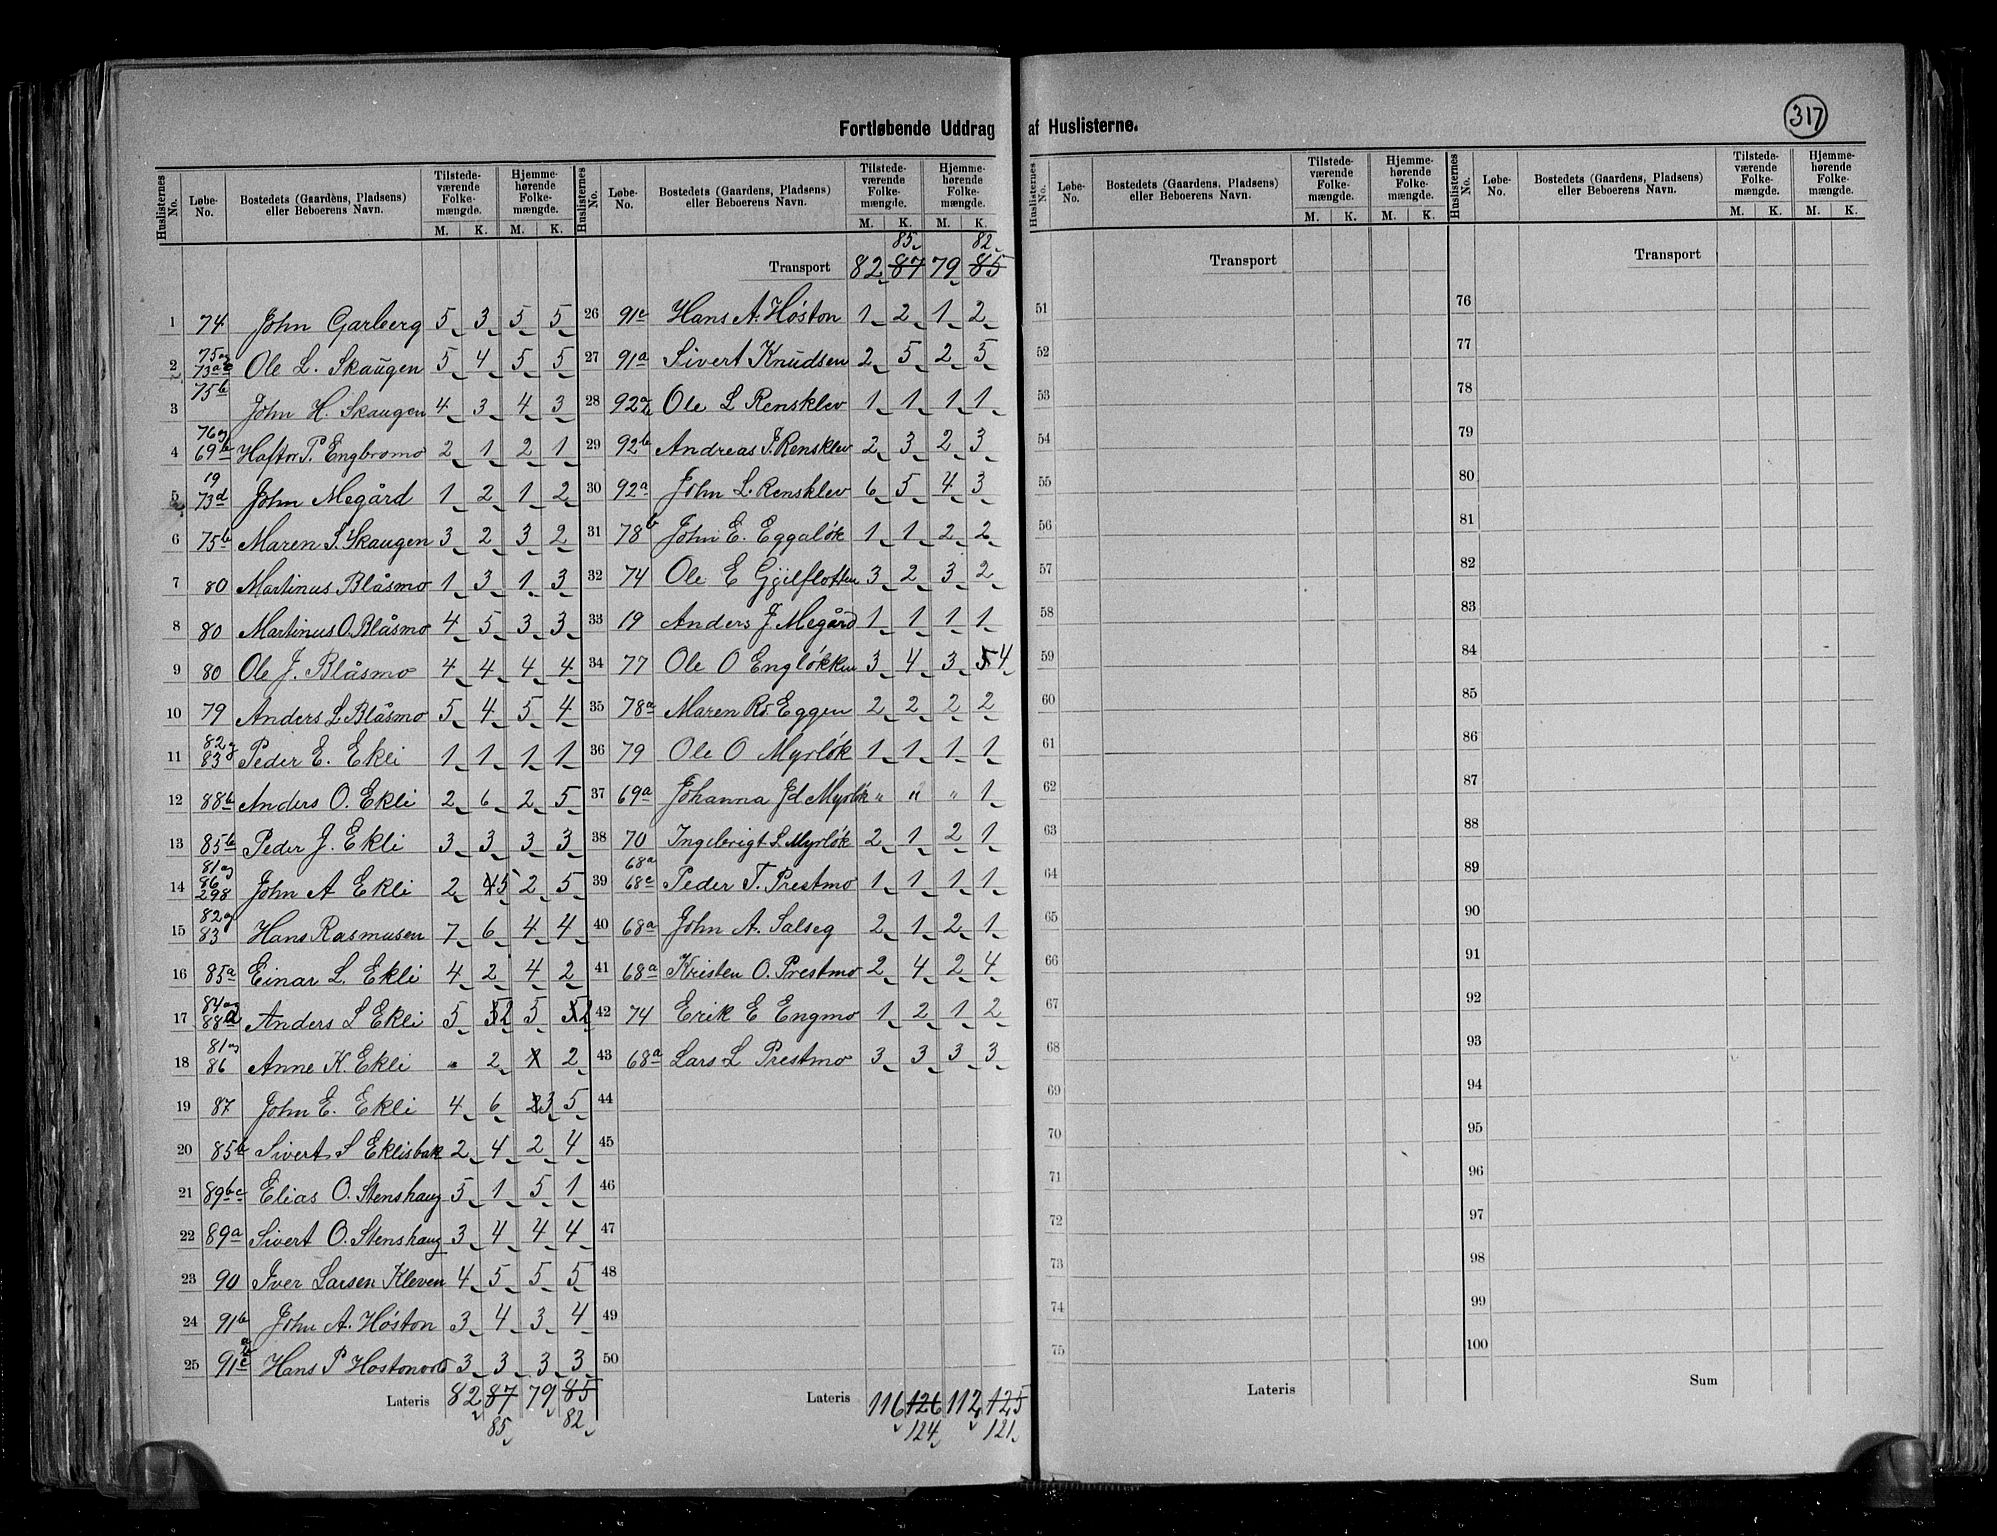 317
Fortløbende Uddrag af Huslisterne.
Huslisternes No. Løbe-No. Bostedets (Gaardens, Pladsens) eller Beboerens Navn. Tilstedeværende Folkemængde. M. K. Hjemmehørende Folkemængde. M. K.
1 74 John Garberg 5 3 5 5
2 75 og 73a Ole L. Skaugen 5 4 5 5
3 75b John H. Skaugen 4 3 4 3
4 76 og 69b Haftor P. Engbromo 2 1 2 1
5 19 73d John Megård 1 2 1 2
6 75b Maren S. Skaugen 3 2 3 2
7 80 Martinus Blåsmo 1 3 1 3
8 80 Martinus O. Blåsmo 4 5 3 3
9 80 Ole J. Blåsmo 4 4 4 4
10 79 Anders L Blåsmo 5 4 5 4
11 82 og 83 Peder E. Ekli 1 1 1 1
12 88b Anders O. Ekli 2 6 2 5
13 85b Peder J. Ekli 3 3 3 3
14 81 og 86 298 John A Ekli 2 4 5 2 5
15 82 og 83 Hans Rasmusen 7 6 4 4
16 85a Einar L. Ekli 4 2 4 2
17 84 og 88a Anders L Ekli 5 5 2 5 5 2
18 81 og 86 Anne K. Ekli " 2 1 2
19 87 John E. Ekli 4 6 2 3 5
20 85b Sivert S Eklisbak 2 4 2 4
21 89bc Elias O. Stenshaug 5 1 5 1
22 89a Sivert O. Stenshaug 3 4 4 4
23 90 Iver Larsen Kleven 4 5 5 5
24 91b John A. Høston 3 4 3 4
25 91c Hans P Hostonvold 3 3 3 3
Lateris 82 87 79 85
85 82
Huslisternes No. Løbe-No. Bostedets (Gaardens, Pladsens) eller Beboerens Navn. Tilstedeværende Folkemængde. M. K. Hjemmehørende Folkemængde. M. K.
85 82
Transport 82 87 79 85
26 91c Hans A. Høston 1 2 1 2
27 91a Sivert Knudsen 2 5 2 5
28 92a Ole L Rensklev 1 1 1 1
29 92b Andreas J. Rensklev 2 3 2 3
30 92a John L. Rensklev 6 5 4 3
31 78b John E. Eggaløk 1 1 2 2
32 74 Ole E Gjilflotten 3 2 3 2
33 19 Anders J. Megård 1 1 1 1
34 77 Ole O Engløkken 3 4 3 5 4
35 78a Maren Rs. Eggen 2 2 2 2
36 79 Ole O Myrløk 1 1 1 1
37 69a Johanna Jd Myrløk " " " 1
38 70 Ingebrigt L Myrløk 2 1 2 1
39 68a 68c Peder T. Prestmo 1 1 1 1
40 68a John A. Salseg 2 1 2 1
41 68a Kristen O. Prestmo 2 4 2 4
42 74 Erik E Engmo 1 2 1 2
43 68a Lars L Prestmo 3 3 3 3
44
45
46
47
48
49
50
Lateris 116 126 112 125
124 121
Huslisternes No. Løbe-No. Bostedets (Gaardens, Pladsens) eller Beboerens Navn. Tilstedeværende Folkemængde. M. K. Hjemmehørende Folkemængde. M. K.
Transport
51
52
53
54
55
56
57
58
59
60
61
62
63
64
65
66
67
68
69
70
71
72
73
74
75
Lateris
Huslisternes No. Løbe-No. Bostedets (Gaardens, Pladsens) eller Beboerens Navn. Tilstedeværende Folkemængde. M. K. Hjemmehørende Folkemængde. M. K.
Transport
76
77
78
79
80
81
82
83
84
85
86
87
88
89
90
91
92
93
94
95
96
97
98
99
100
Sum